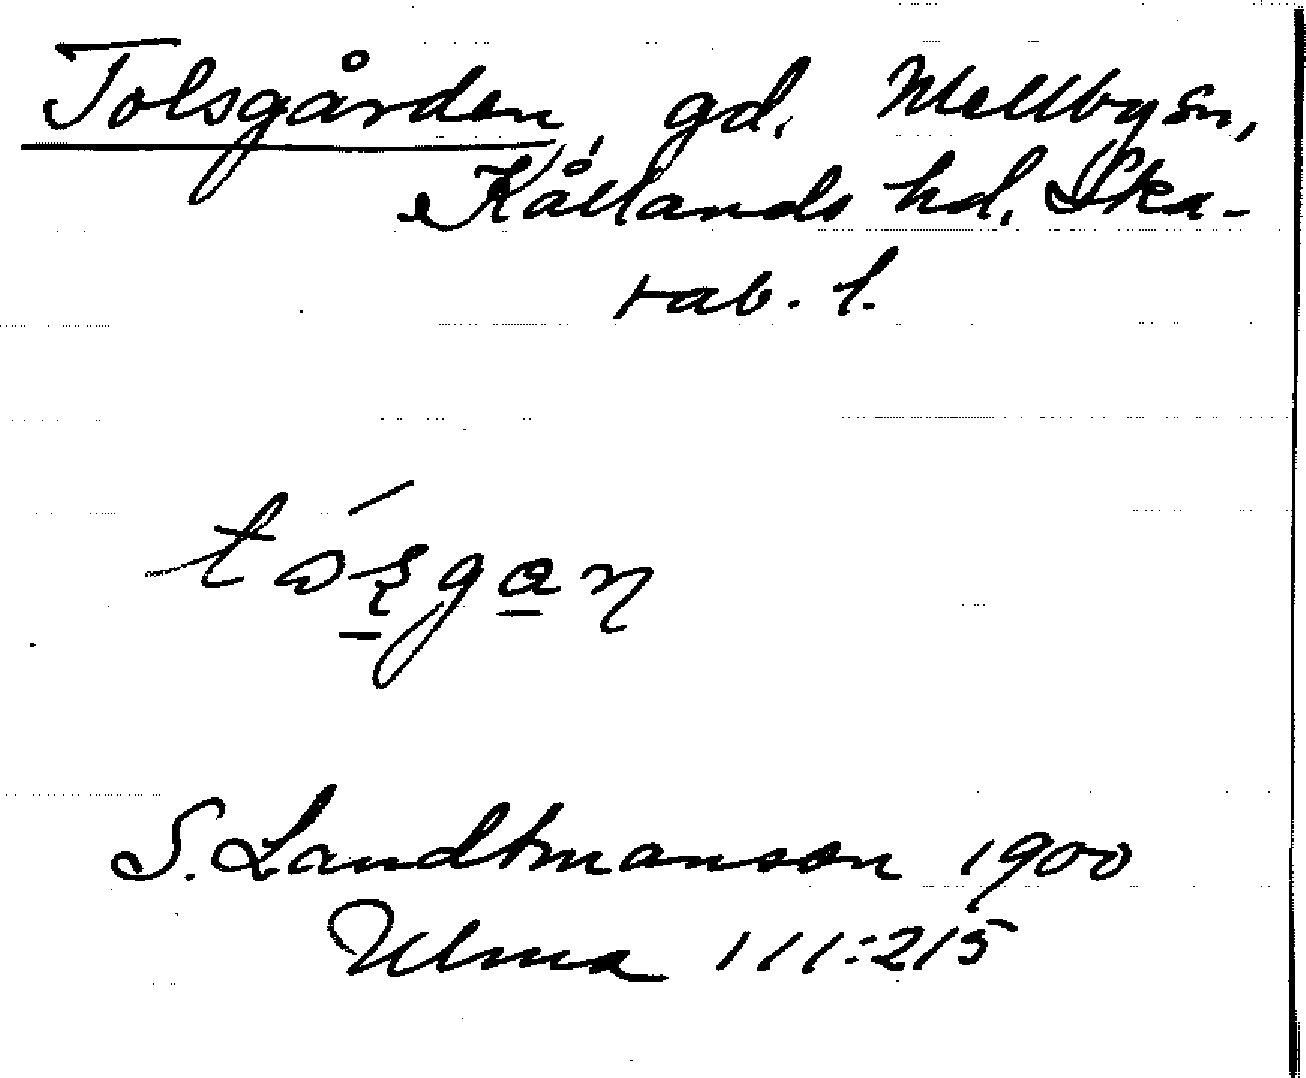 Tolsgården, gd. Mellby sn,
Kållands hd. Ska-
rab. l.
S. Landtmanson 1900
Ulma 111:215